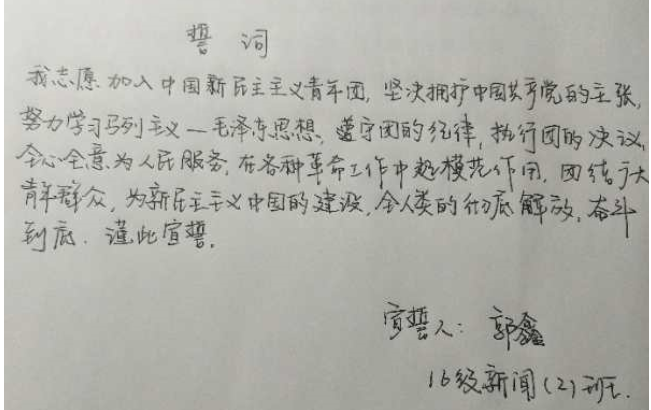 誓词
我志愿加入中国新民主主义青年团,坚决拥护中国共产党的主张,
努力学习马列主义一毛泽东思想,遵守团的纪律,执行团的决议,
全心全意为人民服务,在各种革命工作中起模范作用,团结广大
青年群众,为新民主主义中国的建设,全人类的彻底解放,奋斗
到底.谨此宣誓。
宣誓人:郭鑫
16级新闻(2)班.